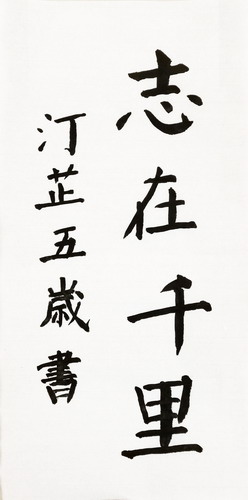 志在千里
汀芷五歲書